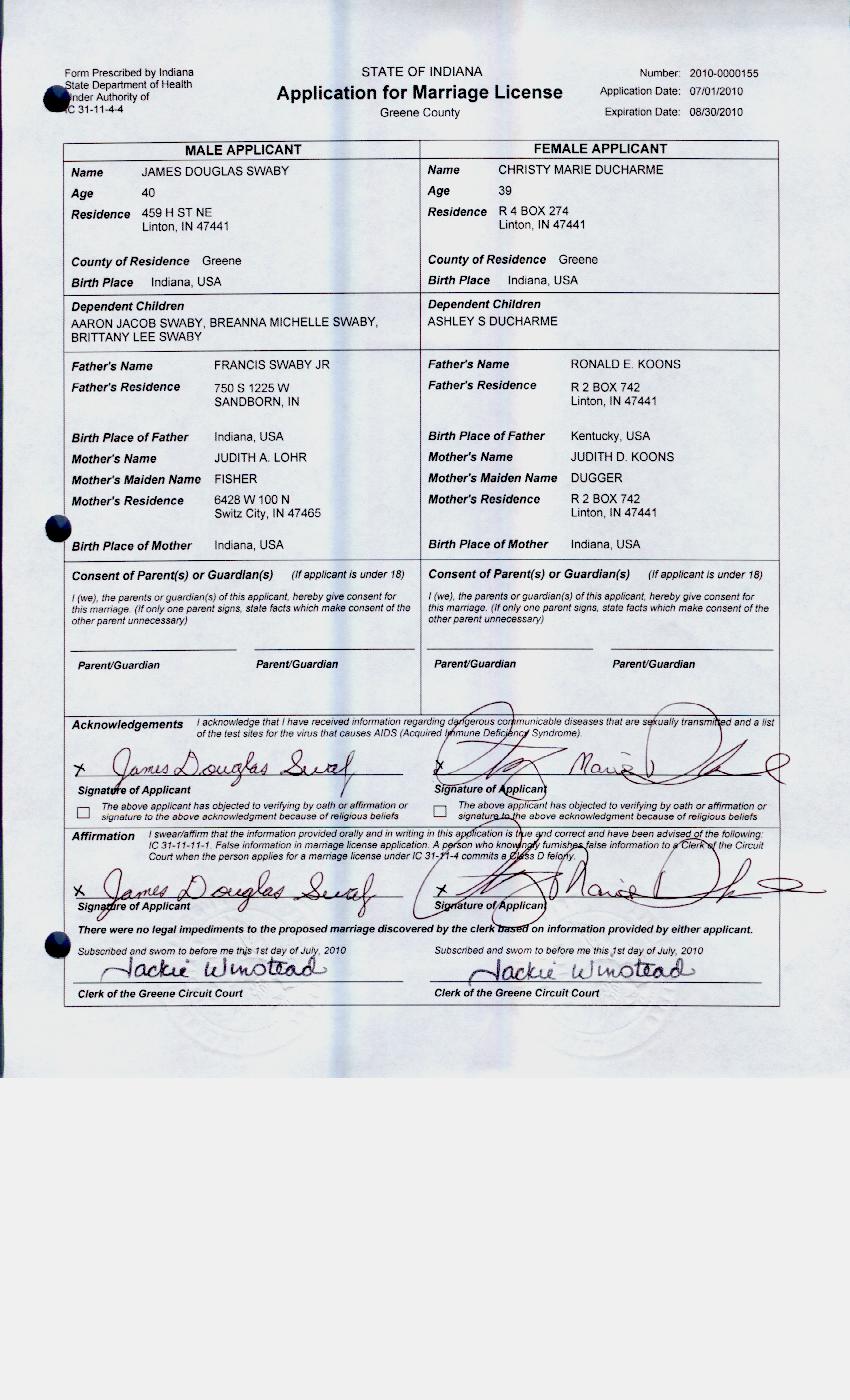 Form Prescribed by Indiana
State Department of Health
Under Authority of
IC 31-11-4-4
STATE OF INDIANA
Application for Marriage License
Greene County
Number: 2010-0000155
Application Date: 07/01/2010
Expiration Date: 08/30/2010
MALE APPLICANT
Name JAMES DOUGLAS SWABY
Age 40
Residence 459 H ST NE
Linton, IN 47441
County of Residence Greene
Birth Place Indiana, USA
Dependent Children
AARON JACOB SWABY, BREANNA MICHELLE SWABY,
BRITTANY LEE SWABY
Father's Name FRANCIS SWABY JR
Father's Residence 750 S 1225 W
SANDBORN, IN
Birth Place of Father Indiana, USA
Mother's Name JUDITH A. LOHR
Mother's Maiden Name FISHER
Mother's Residence 6428 W 100 N
Switz City, IN 47465
Birth Place of Mother Indiana, USA
Consent of Parent(s) or Guardian(s) (If applicant is under 18)
I (we), the parents or guardian(s) of this applicant, hereby give consent for
this marriage. (If only one parent signs, state facts which make consent of the
other parent unnecessary)
Parent/Guardian Parent/Guardian
FEMALE APPLICANT
Name CHRISTY MARIE DUCHARME
Age 39
Residence R 4 BOX 274
Linton, IN 47441
County of Residence Greene
Birth Place Indiana, USA
Dependent Children
ASHLEY S DUCHARME
Father's Name RONALD E. KOONS
Father's Residence R 2 BOX 742
Linton, IN 47441
Birth Place of Father Kentucky, USA
Mother's Name JUDITH D. KOONS
Mother's Maiden Name DUGGER
Mother's Residence R 2 BOX 742
Linton, IN 47441
Birth Place of Mother Indiana, USA
Consent of Parent(s) or Guardian(s) (If applicant is under 18)
I (we), the parents or guardian(s) of this applicant, hereby give consent for
this marriage. (If only one parent signs, state facts which make consent of the
other parent unnecessary)
Parent/Guardian Parent/Guardian
Acknowledgements I acknowledge that I have received information regarding dangerous communicable diseases that are sexually transmitted and a list
of the test sites for the virus that causes AIDS (Acquired Immune Deficiency Syndrome).
x James Douglas x Marie
Signature of Applicant Signature of Applicant
The above applicant has objected to verifying by oath or affirmation or
signature to the above acknowledgment because of religious beliefs
The above applicant has objected to verifying by oath or affirmation or
signature to the above acknowledgment because of religious beliefs
Affirmation I swear/affirm that the information provided orally and in writing in this application is true and correct and have been advised of the following:
IC 31-11-11-1. False information in marriage license application. A person who knowingly furnishes false information to a Clerk of the Circuit
Court when the person applies for a marriage license under IC 31-11-4 commits a Class D felony.
x James Douglas x Marie
Signature of Applicant Signature of Applicant
There were no legal impediments to the proposed marriage discovered by the clerk based on information provided by either applicant.
Subscribed and sworn to before me this 1st day of July, 2010 Subscribed and sworn to before me this 1st day of July, 2010
Jackie Winstead Jackie Winstead
Clerk of the Greene Circuit Court Clerk of the Greene Circuit Court